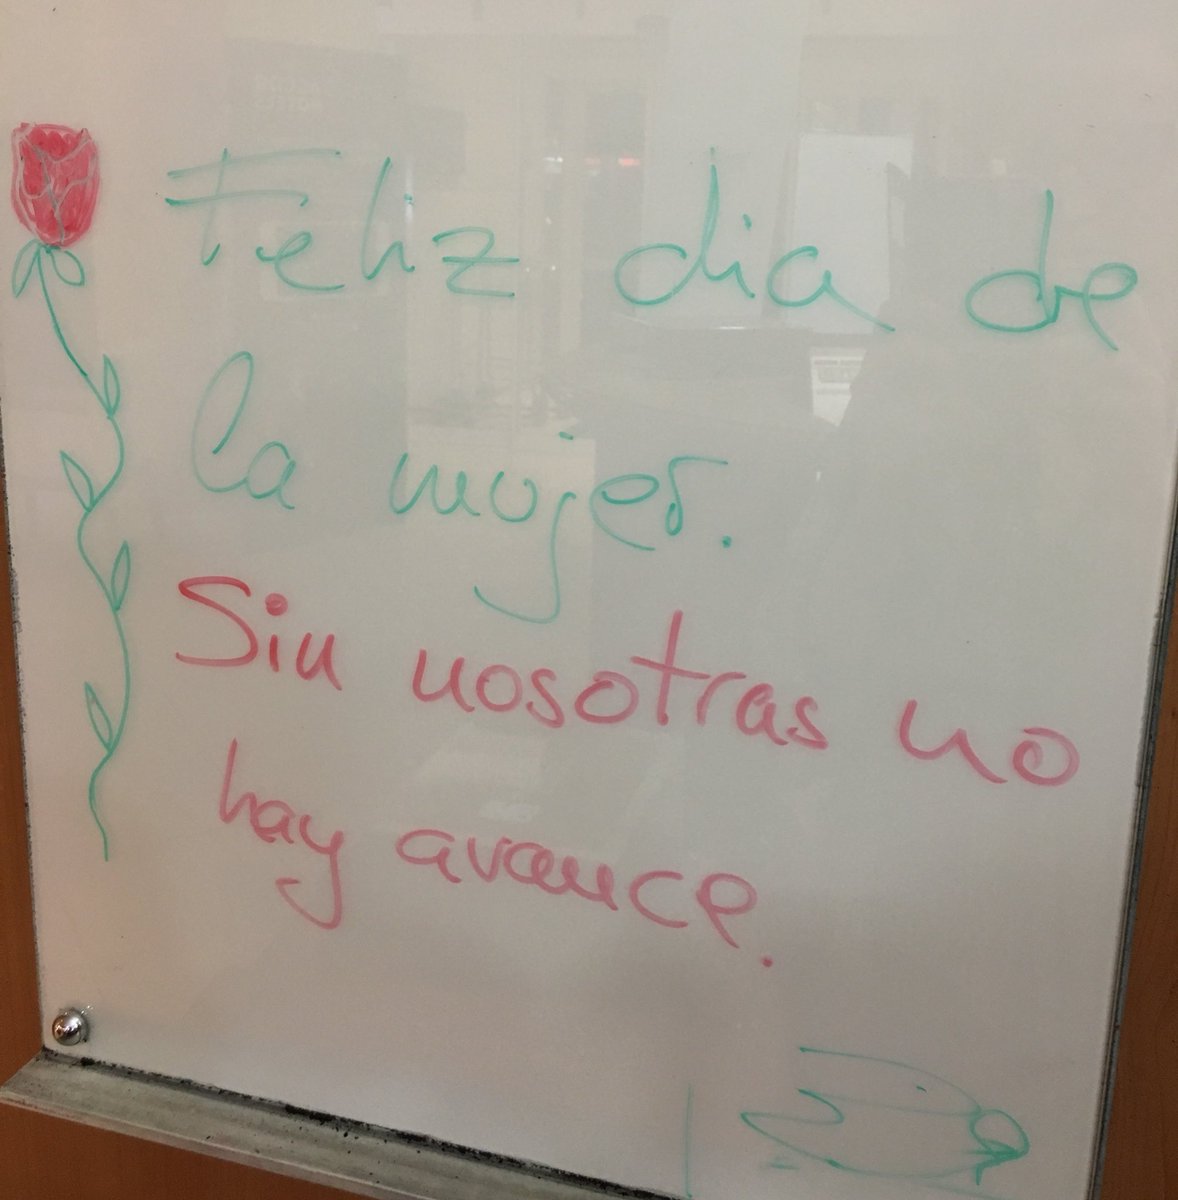 Feliz dia de
la mujer.
Sin nosotras no
hay avance.